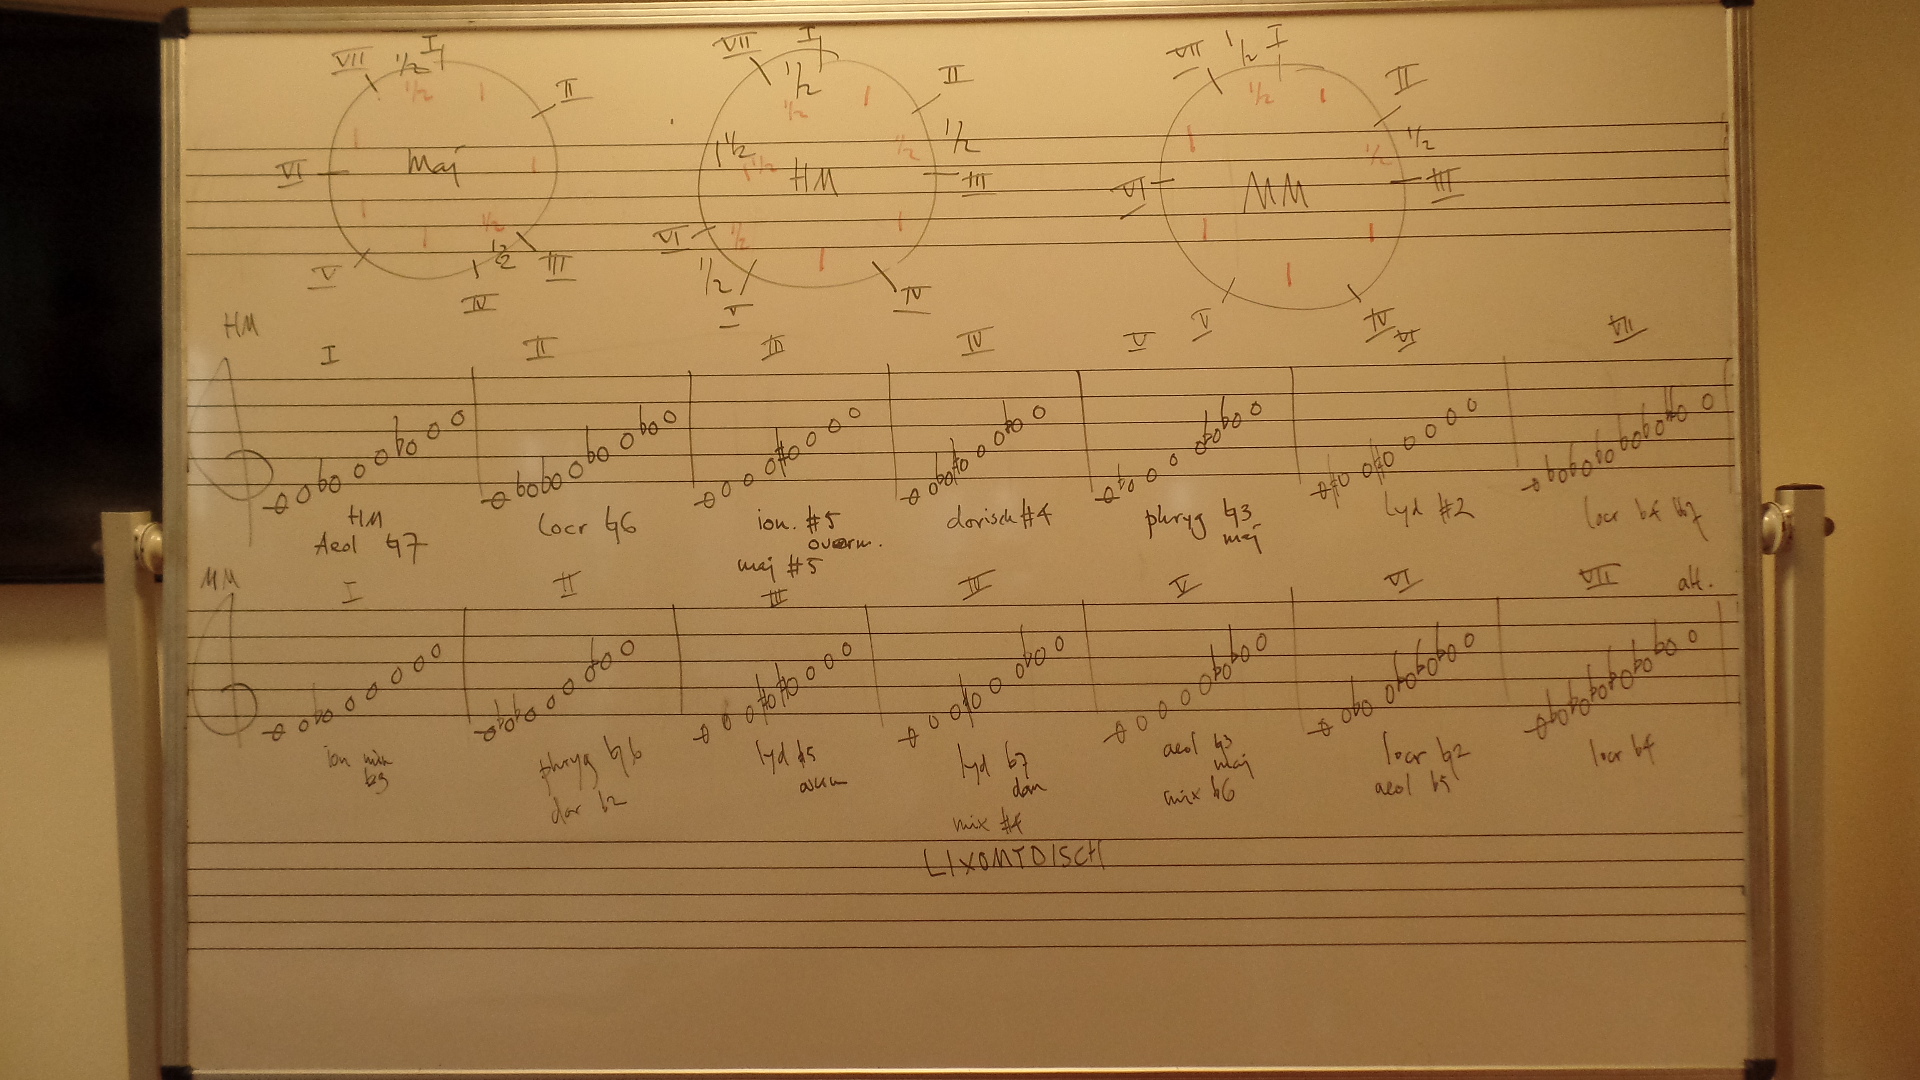 VII ½ I
½ 1
II
1
1
Maj
VI
1
½
1
½
III
V
IV
VII I
½
½ 1
II
1½
1½
½
½
HM
III
VI
½
1
1
½
V
IV
VII ½ I
½ 1
II
1
½
½
MM
VI
III
1
1
1
V
IV
HM
I II III IV V VI VII
HM
Aeol ♮7
Locr ♮6
ion. #5
overm.
maj #5
dorisch #4
phryg ♮3
maj
lyd #2
locr b4
MM
I II III IV V VI VII alt.
ion min
b3
phryg ♮6
dor b2
lyd #5
lyd b7
dom
mix #4
LIXOMYDISCH
aeol ♮3
maj
mix b6
locr ♮2
aeol b5
locr b4